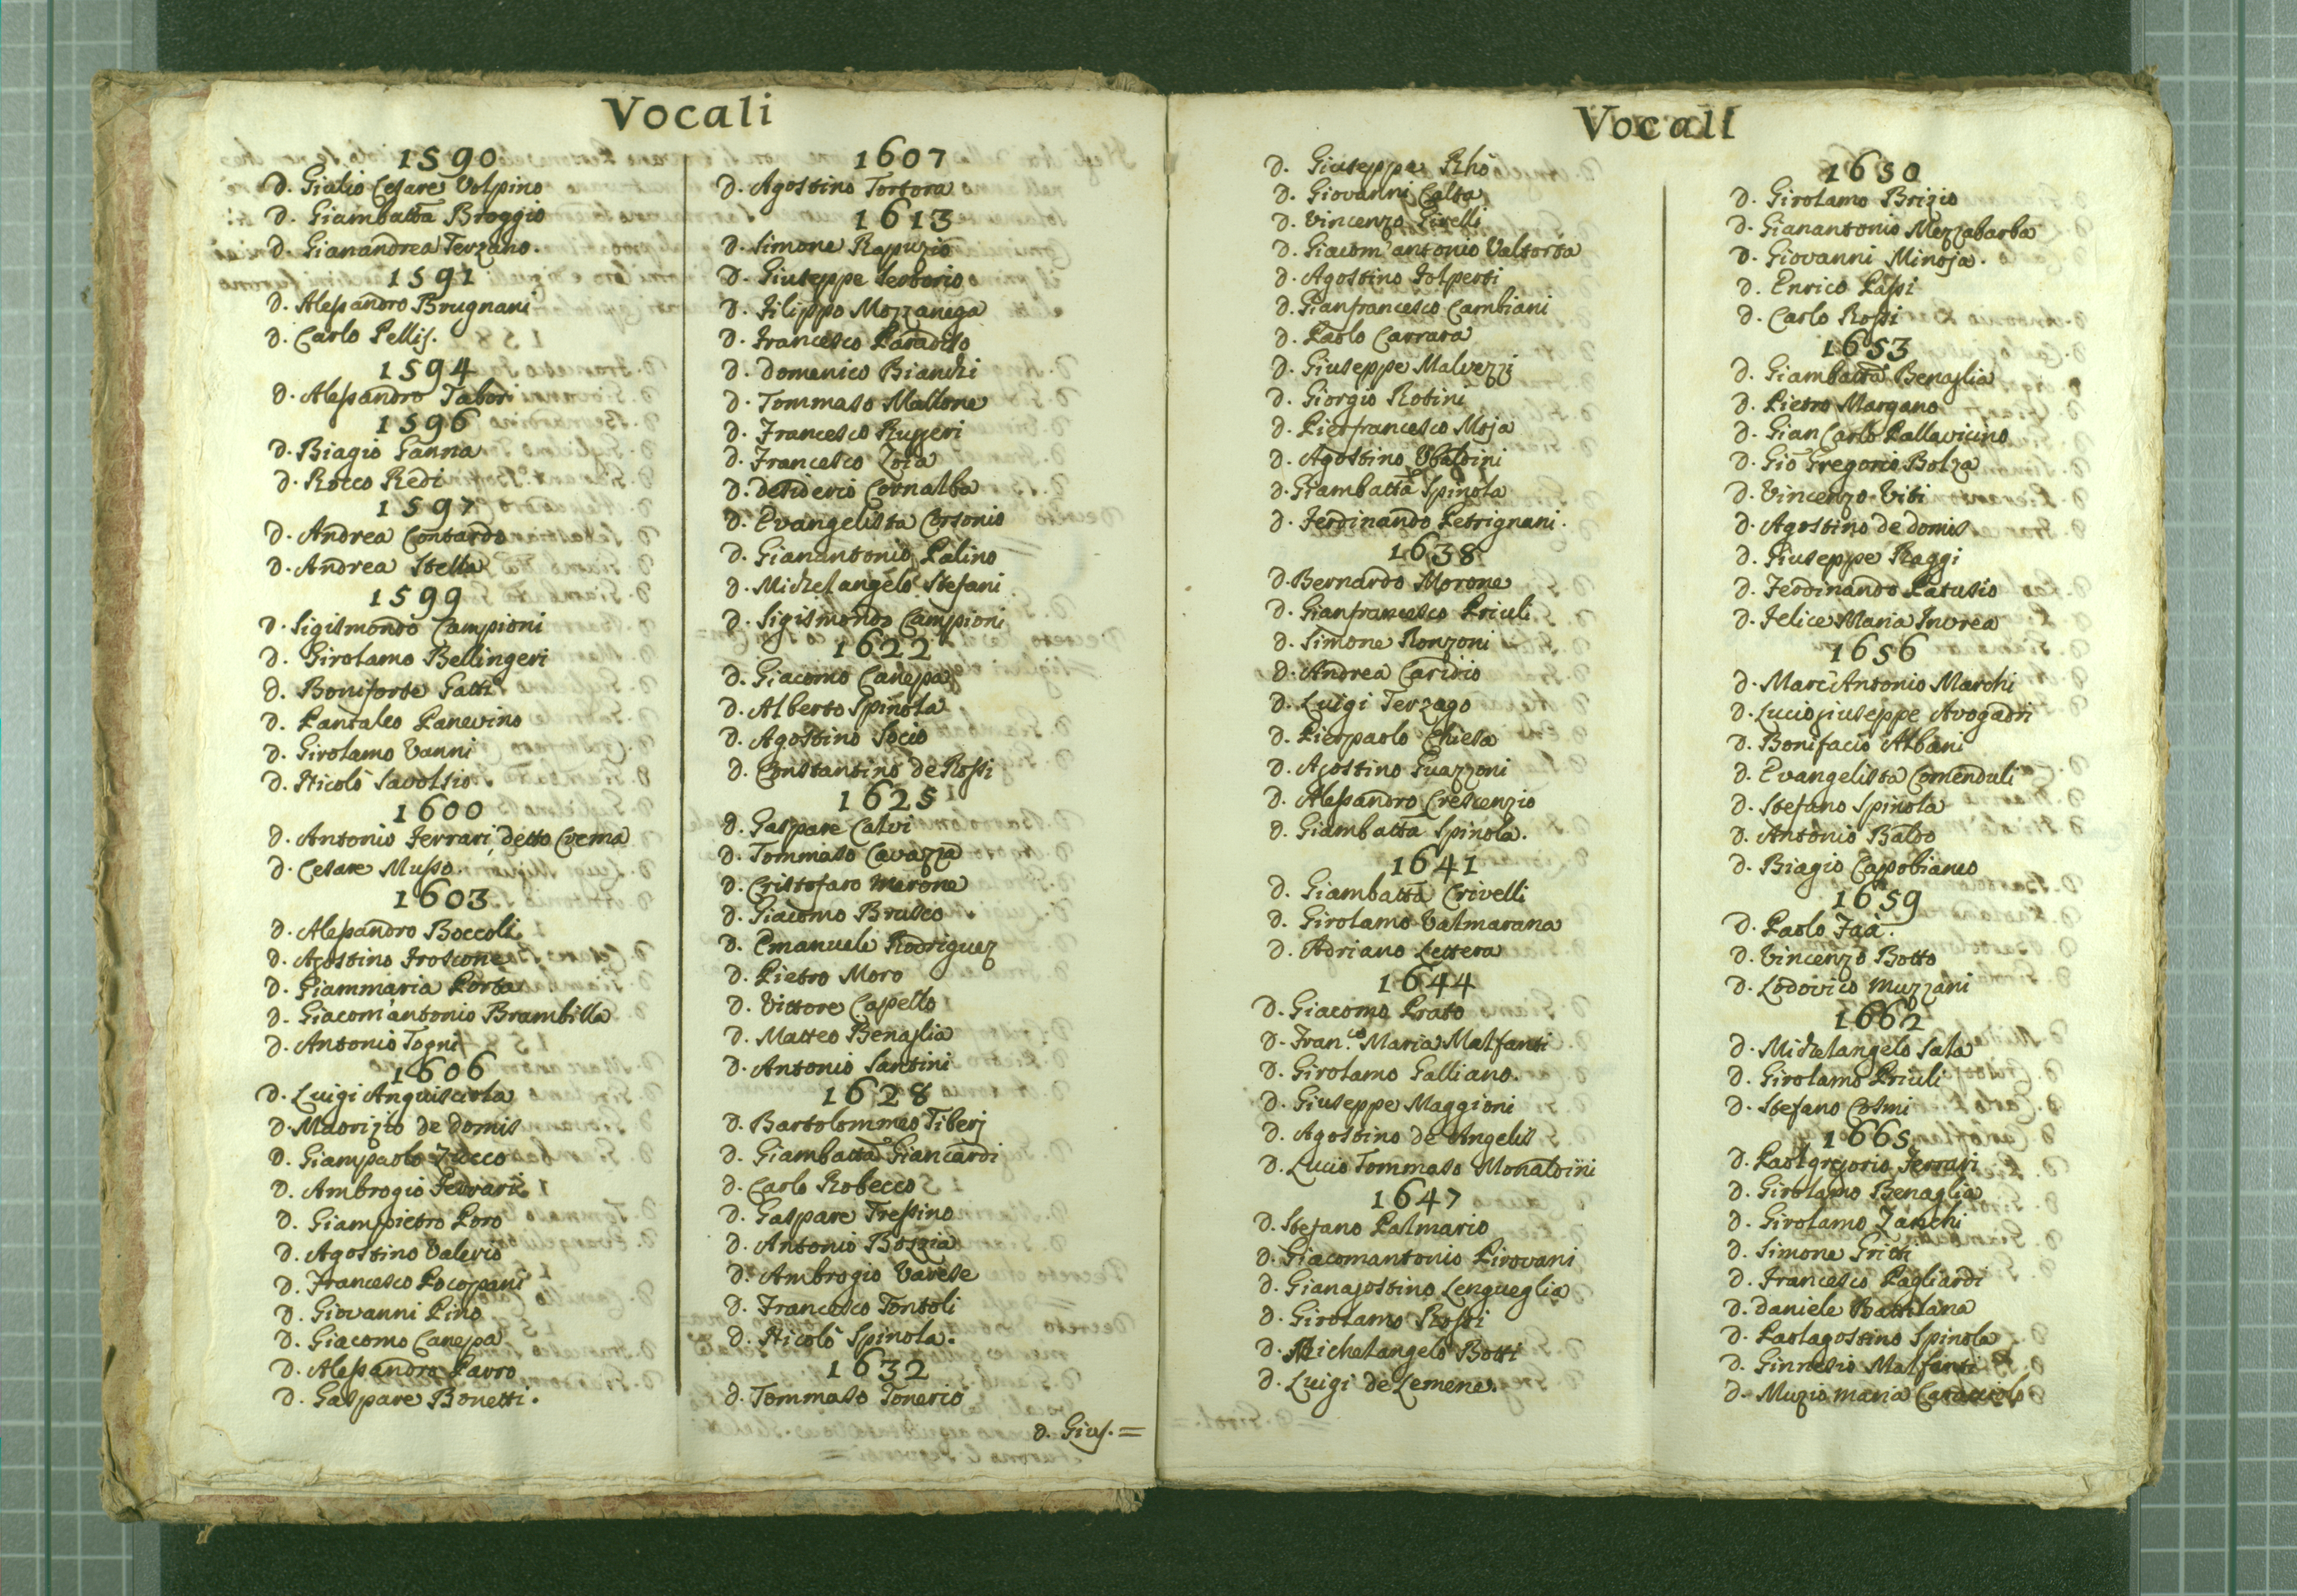 Vocali
1590
D. Giulio Cesare Volpino
D. Giambatta Broggio
D. Gianandrea Terzano.
1591
D. Alessandro Brugnani
D. Carlo Pellis.
1594
D. Alessandro Tabori
1596
D. Biagio Ganna
D. Rocco Redi
1597
D. Andrea Contardo
D. Andrea Stella
1599
D. Sigismondo Campioni
D. Girolamo Bellingeri
D. Boniforte Gatti
D. Pantaleo Panevino
D. Girolamo Vanni
D. Nicolò Savolsio
1600
D. Antonio Ferrari detto Crema
D. Cesare Musso.
1603
D. Alessandro Boccoli
D. Agostino Froscone
D. Giammaria Porta
D. Giacom'antonio Brambilla
D. Antonio Togni
1606
D. Luigi Anguisciola
D. Maorizio de Domis
D. Giampaolo
D. Ambrogio Ferrari
D. Giampietro Poro
D. Agostino Valerio
D. Francesco Pocopani
D. Giovanni Pino
D. Giacomo Canepa
D. Alessandro Pavro
D. Gaspare Bonetti.
1607
D. Agostino Tortora
1613
D. Simone Rapuzio
D. Giuseppe Serborio
D. Filippo Mozzanega
D. Francesco Paradiso
D. Domenico Bianchi
D. Tommaso Mallone
D. Francesco Rugeri
D. Francesco Zoia
D. Desiderio Cornalba
D. Evangelista Corsonio
D. Gianantonio Palino
D. Michelangelo Stefani
D. Sigismondo Campioni
1622
D. Giacomo Canepa
D. Alberto Spinola
D. Agostino Socio
D. Constantino de Rossi
1625
D. Gaspare Calvi
D. Tommaso Cavazza
D. Cristofaro Merone
D. Giacomo Brusco
D. Emanuele Rodriguez
D. Pietro Moro
D. Vittore Capello
D. Matteo Benaglia
D. Antonio Santini
1628
D. Bartolommeo Tiberj
D. Giambatta Giancardi
D. Carlo Robecco
D. Gaspare Tressino
D. Antonio Bosgia
D. Ambrogio Varese
D. Francesco Tontoli
D. Nicolò Spinola.
1632
D. Tommaso Tonerio
D. Gius. =
Vocali
D. Giuseppe Rhò
D. Giovanni Calta
D. Vincenzo Girelli
D. Giacom'antonio Valtorta
D. Agostino Folperti
D. Gianfrancesco Cambiani
D. Paolo Carrara
D. Giuseppe Malvezzi
D. Giorgio Rotini
D. Pierfrancesco Moja
D. Agostino Ubaldini
D. Giambatta Spinola
D. Ferdinando Petrignani.
1638
D. Bernardo Morone
D. Gianfrancesco Priuli
D. Simone Ronzoni
D. Andrea Caridio
D. Luigi Terzago
D. Pierpaolo Chiesa
D. Agostino Guazzoni
D. Alessandro Crescenzio
D. Giambatta Spinola.
1641
D. Giambatta Crivelli
D. Girolamo Valmarana
D. Adriano Lettera
1644
D. Giacomo Prato
D. Fran.co Maria Malfanti
D. Girolamo Galliano.
D. Giuseppe Maggioni
D. Agostino de Angelis
D. Lucio Tommaso Monaldini
1647
D. Stefano Palmario
D. Giacomantonio Pirovani
D. Gianagostino Lengueglia
D. Girolamo Rossi
D. Michelangelo Botti
D. Luigi de Lemene.
1650
D. Girolamo Brizio
D. Gianantonio Mezzabarba
D. Giovanni Minoja.
D. Enrico Passi
D. Carlo Rossi
1653
D. Giambatta Benaglia
D. Pietro Margano
D. Gian Carlo Pallavicino
D. Giò Gregorio Bolza
D. Vincenzo Viti
D. Agostino de Domis
D. Giuseppe Raggi
D. Ferdinando Patusio
D. Felice Maria Invrea
1656
D. Marc'Antonio Marchi
D. Luciogiuseppe Avogadri
D. Bonifacio Albani
D. Evangelista Comenduli
D. Stefano Spinola
D. Antonio Baldo
D. Biagio Capobianco
1659
D. Paolo Faà.
D. Vincenzo Botto
D. Lodovico Muzzani
1662
D. Michelangelo Sala
D. Girolamo Priuli
D. Stefano Cosmi
1665
D. Paolgregorio Ferrari
D. Girolamo Benaglia
D. Girolamo Zanchi
D. Simone Griti
D. Francesco Pagliardi
D. Daniele Battilana
D. Paolagostino Spinola
D. Ginnesio Malfanti
D. Muzio maria Caracciolo